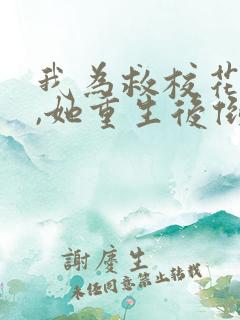 我為救校花
,她重生後
謝慶生
未经同意禁止转载